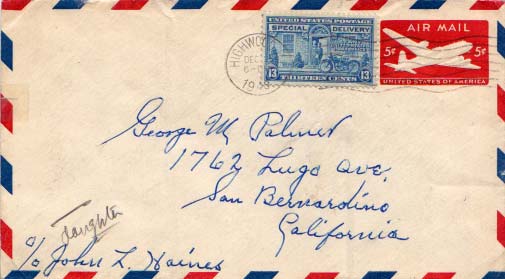 UNITED STATES POSTAGE
SPECIAL DELIVERY
13 THIRTEEN CENTS 13
AIR MAIL
5¢ 5¢
UNITED STATES OF AMERICA
DEC
George M Palmer
1762 Lugo ave,
San Bernardino,
California
Daughter
c/o John L. Haines